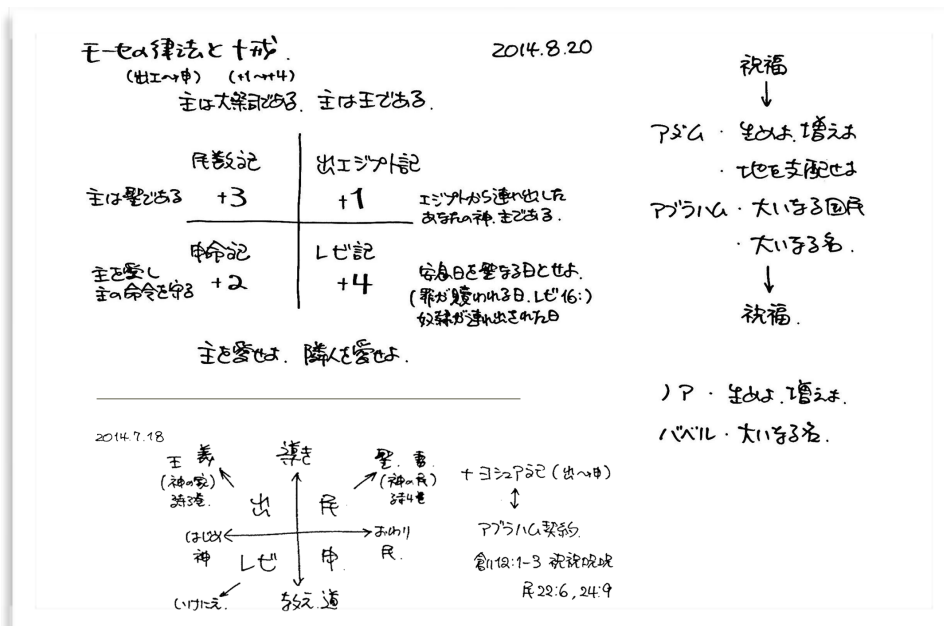 モーセの律法と十戒.
2014.8.20
(出エ〜申) (+1〜+4)
主は大祭司である. 主は王である.
民数記
+3
出エジプト記
+1
主は聖である
エジプトから連れ出した
あなたの神.主である.
申命記
+2
レビ記
+4
主を愛し
主の命令を守る
安息日を聖なる日とせよ.
(罪が贖われる日.レビ16:)
奴隷が連れ出された日
主を愛せよ. 隣人を愛せよ.
祝福
アダム・生めよ.増えよ
・地を支配せよ
アブラハム・大いなる国民
・大いなる名.
祝福.
ノア・生めよ.増えよ.
バベル・大いなる名.
2014.7.18
王 義
(神の家)
導き
聖.書
(神の民)
出
民
はじめ
神
おわり
民.
レビ
申.
いけにえ.
教え.道
+ヨシュア記(出〜申)
アブラハム契約.
創12:1-3
民22:6,24:9